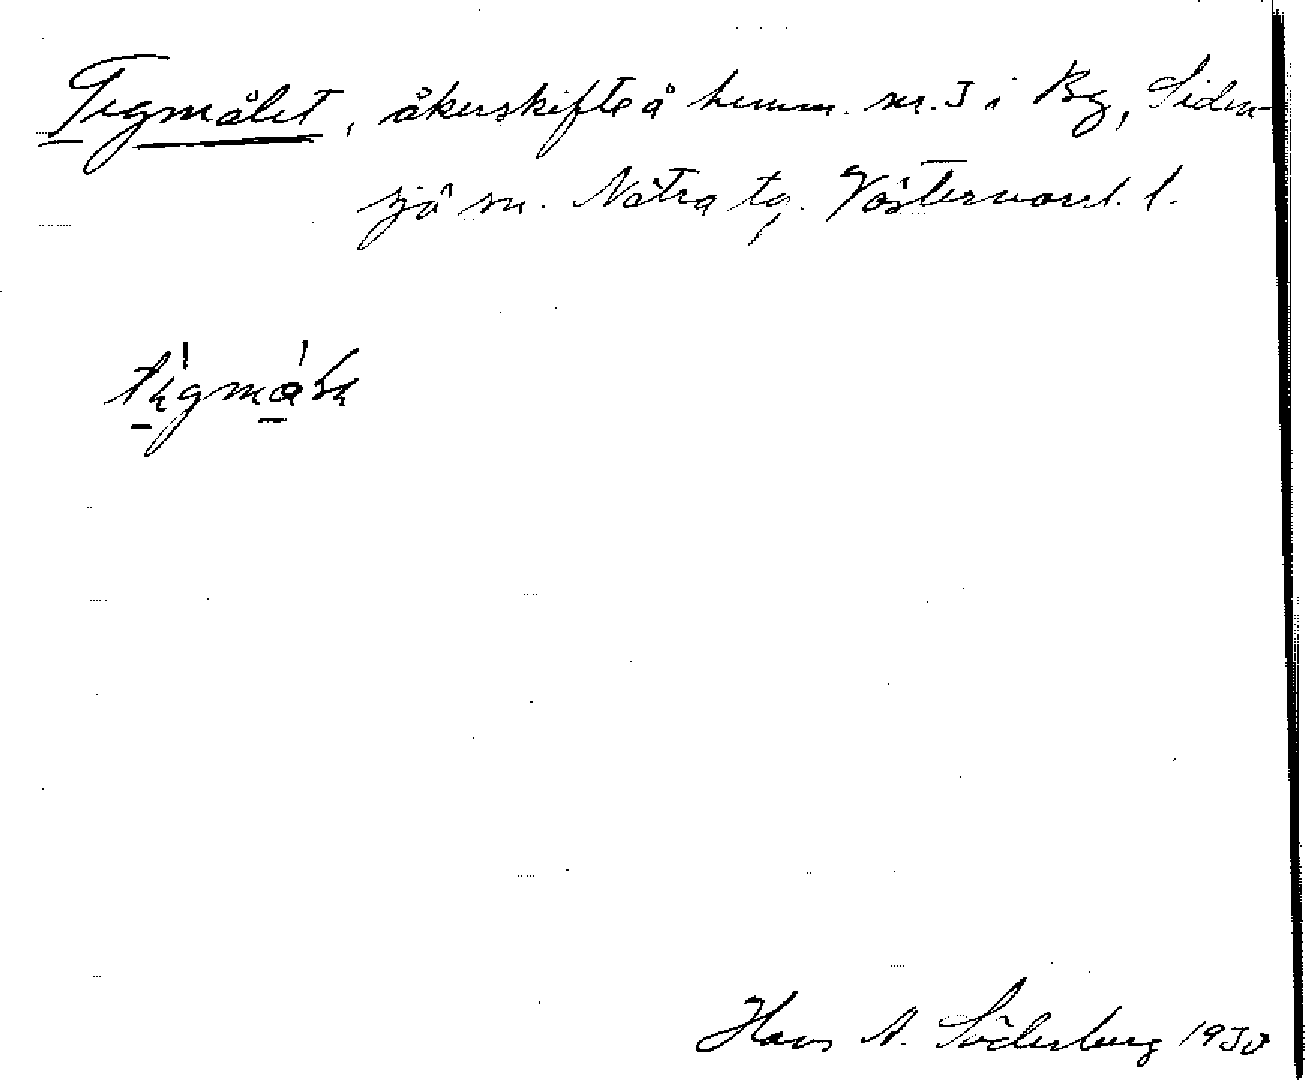 Tegmålet, åkerskifte å hemm. nr. 3 i By, Siden-
sjö sn. Nätra tg. Västernorrl. l.
Hans A. Söderberg 1930